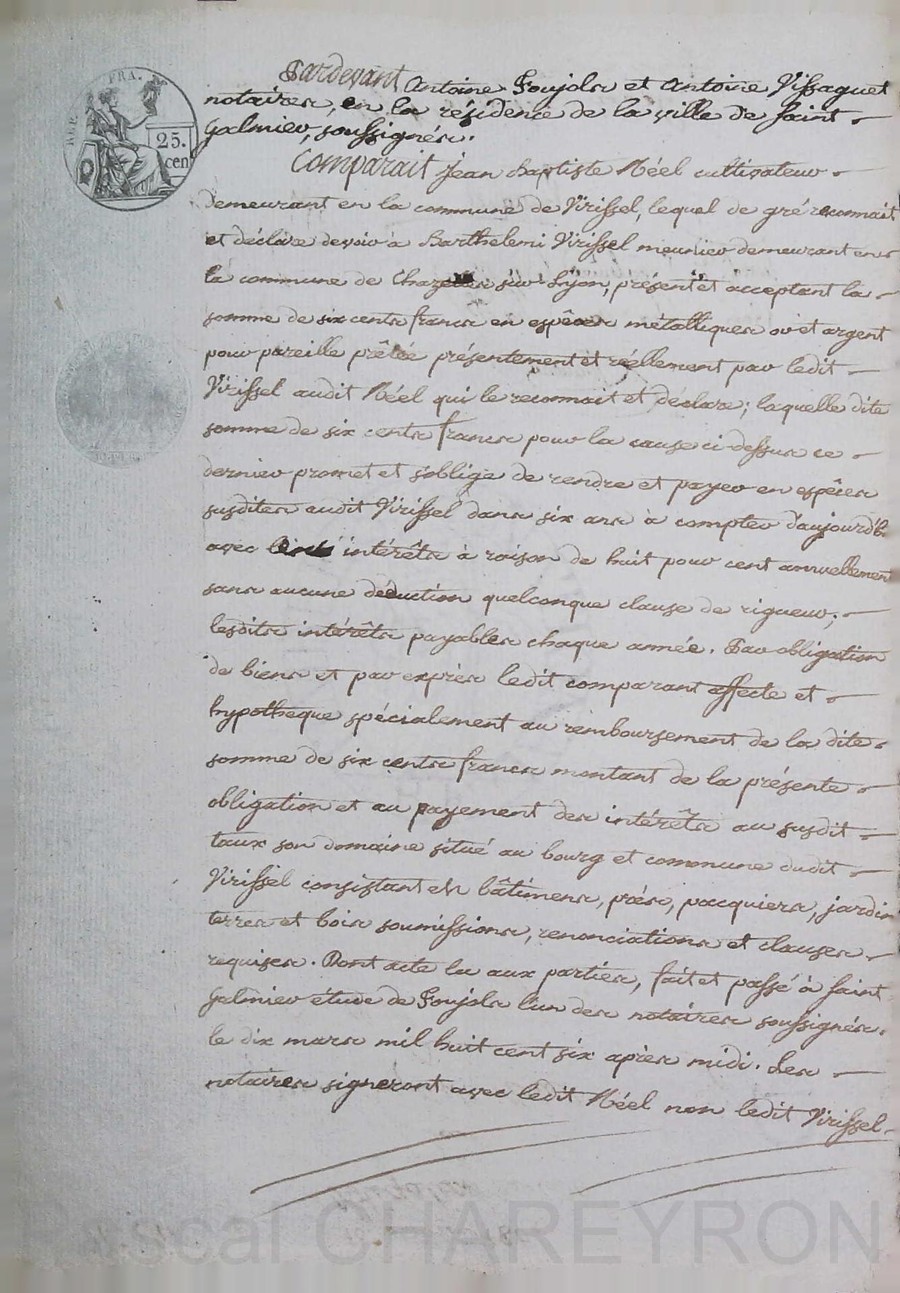 REP. FRA.
25. cen
Pardevant Antoine Poujols et Antoine Vissaguet
notaires, en la résidence de la ville de saint
galmier, soussignés.
Comparait jean baptiste Réel cultivateur
demeurant en la commune de Virissel, lequel de gré reconnait
et déclare devoir à Barthelemi Virissel meunier demeurant en
la commune de Chazelles sur Lyon, présent et acceptant la
somme de six cents francs en espèces métalliques or et argent
pour pareille prêtée présentement et réellement par ledit
Virissel audit Réel qui le reconnait et déclare; laquelle dite
somme de six cents francs pour la cause ci-dessus ce
dernier promet et s'oblige de rendre et payer en espèces
susdites audit Virissel dans six ans à compter d'aujourd'h.
avec intérêts à raison de huit pour cent annuellement
sans aucune déduction quelconque clause de rigueur;
lesdits intérêts payables chaque année. Par obligation
de biens et par exprès ledit comparant affecte et
hypotheque spécialement au remboursement de la dite
somme de six cents francs montant de la présente
obligation et au payement des intérêts au susdit
taux son domaine situé au bourg et commune dudit
Virissel consistant en bâtimens, prés, pacquiers, jardin
terres et bois soumissions, renonciations et clauses
requises. Dont acte lu aux parties, fait et passé à saint
galmier étude de Poujols l'un des notaires soussignés.
le dix mars mil huit cent six après midi. Les
notaires signeront avec ledit Réel non ledit Virissel.
Pascal CHAREYRON